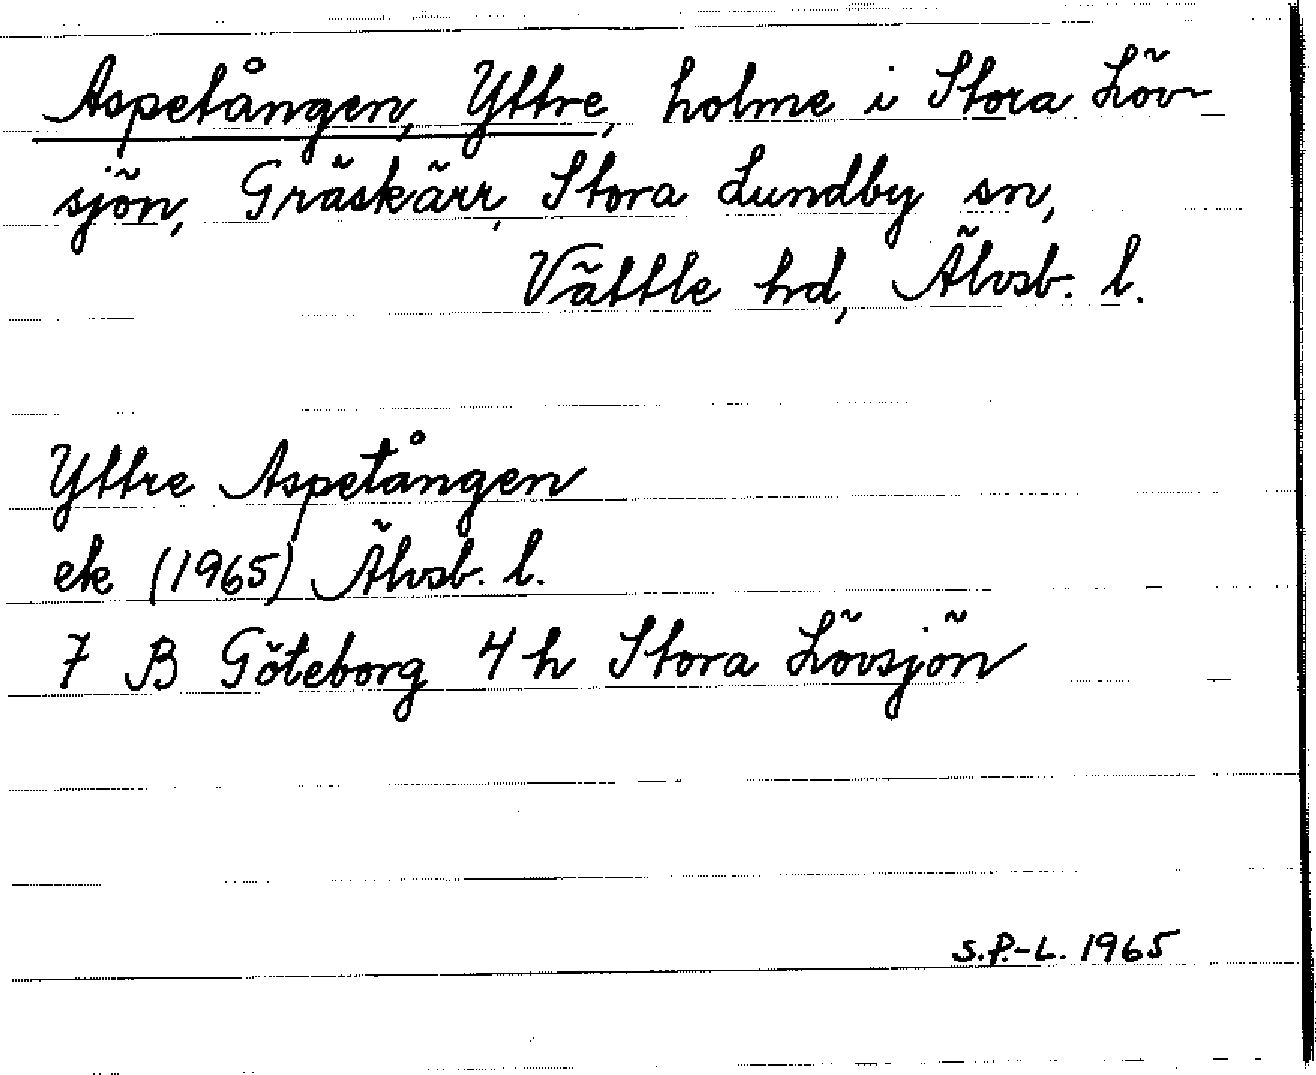 Aspetången, Yttre, holme i Stora Löv-
sjön, Gräskärr, Stora Lundby sn,
Vättle hd, Älvsb. l.
Yttre Aspetången
ek (1965) Älvsb. l.
7 B Göteborg 4 h Stora Lövsjön
S.P.-L. 1965